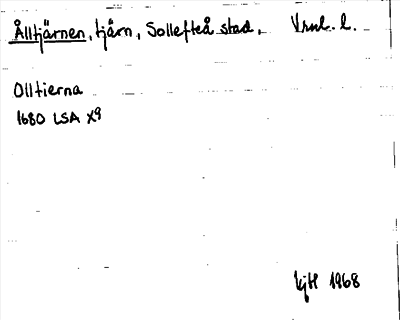 Ålltjärnen, tjärn, Sollefteå stad, Vrnl. l.
Olltierna
1680 LSA X9
KjH 1968